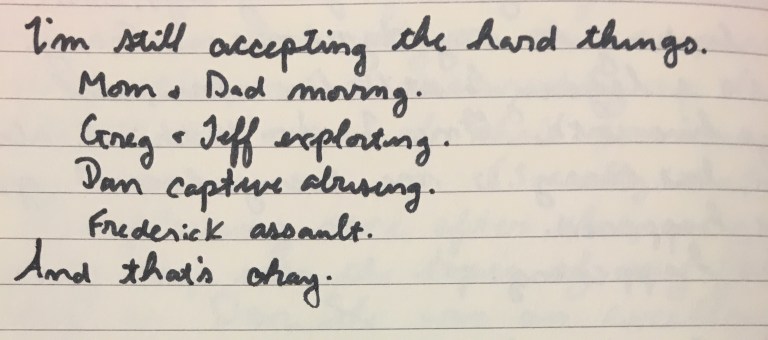 I'm still accepting the hard things.
Mom & Dad moving.
Greg & Jeff exploiting.
Dan captive abusing.
Frederick assault.
And that's okay.